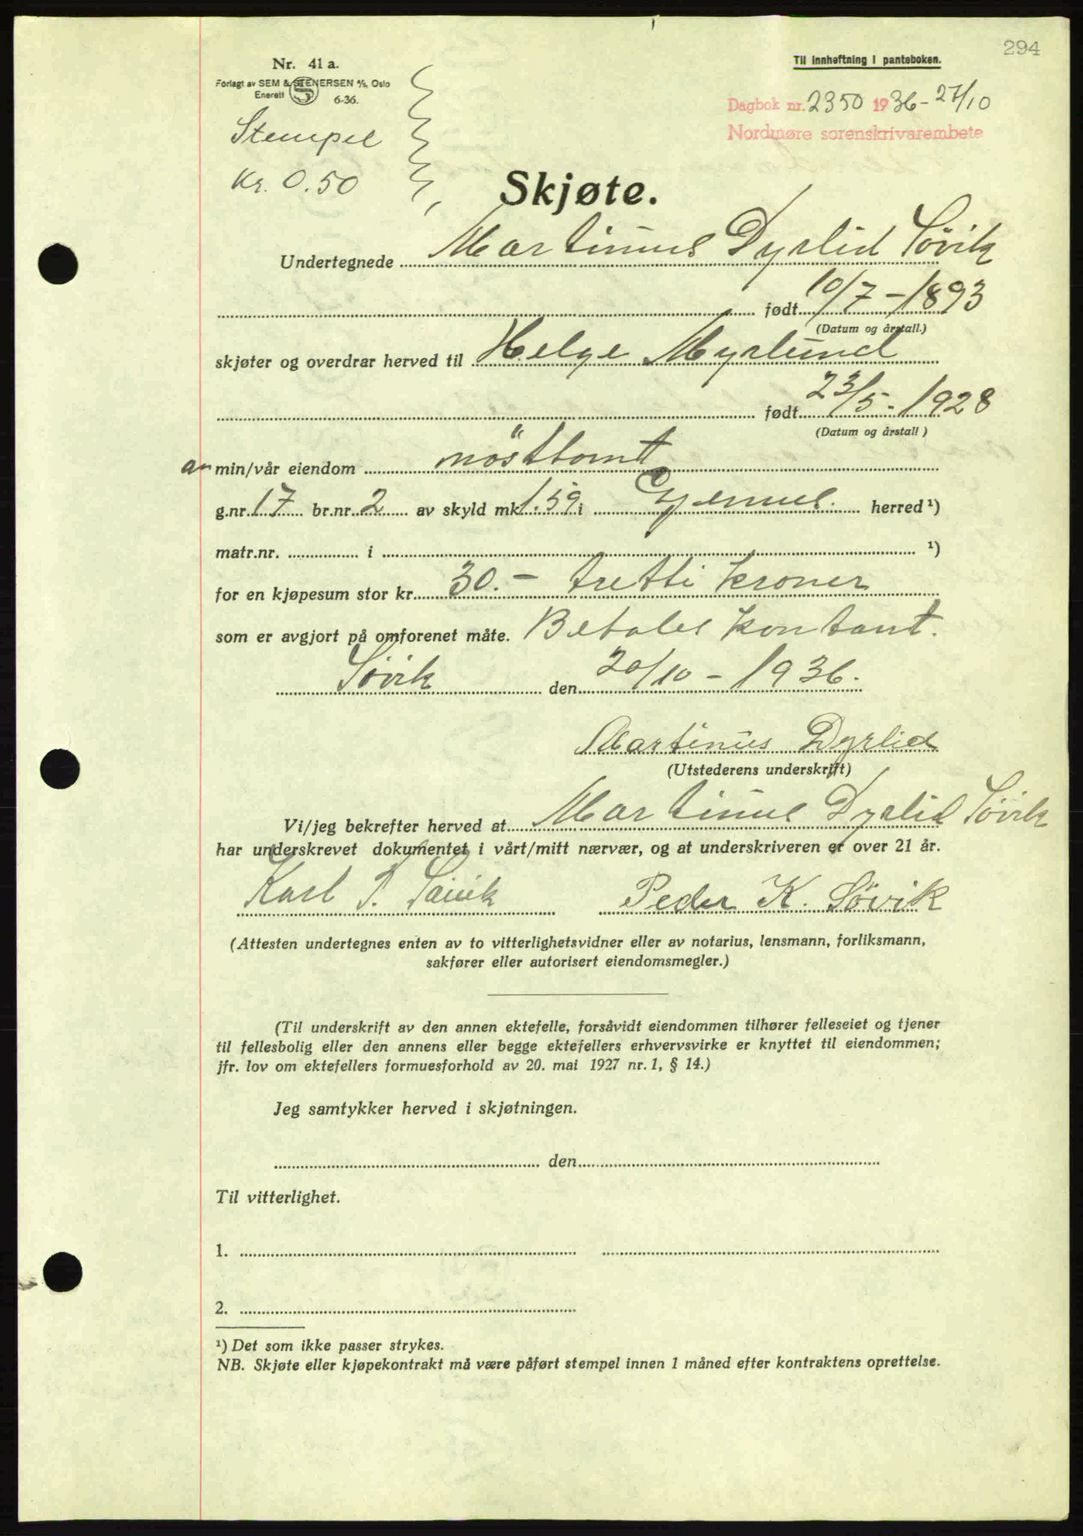 294
Nr. 41 a.
Forlagt av SEM & STENERSEN A/S, Oslo
Enerett 6-36.
Til innheftning i panteboken.
Dagbok nr. 2350 1936 - 27/10
Nordmøre sorenskrivarembete
Stempel
Kr. 0.50
Skjøte.
Undertegnede Martinus Dyrlid Søvik
født 10/7 - 1893
(Datum og årstall.)
skjøter og overdrar herved til Helge Myrlund
født 23/5 - 1928
(Datum og årstall)
av min/vår eiendom nösttomt
g.nr. 17 br.nr. 2 av skyld mk. 1.59 i herred ¹)
matr.nr. i ¹)
for en kjøpesum stor kr. 30.- tretti kroner
som er avgjort på omforenet måte. Betales kontant.
Søvik den 20/10 - 1936.
Martinus Dyrlid
(Utstederens underskrift)
Vi/jeg bekrefter herved at Martinus Dyrlid Søvik
har underskrevet dokumentet i vårt/mitt nærvær, og at underskriveren er over 21 år.
Karl P. Søvik Peder K. Søvik
(Attesten undertegnes enten av to vitterlighetsvidner eller av notarius, lensmann, forliksmann,
sakfører eller autorisert eiendomsmegler.)
(Til underskrift av den annen ektefelle, forsåvidt eiendommen tilhører felleseiet og tjener
til fellesbolig eller den annens eller begge ektefellers erhvervsvirke er knyttet til eiendommen;
jfr. lov om ektefellers formuesforhold av 20. mai 1927 nr. 1, § 14.)
Jeg samtykker herved i skjøtningen.
den
Til vitterlighet.
1.
2.
¹) Det som ikke passer strykes.
NB. Skjøte eller kjøpekontrakt må være påført stempel innen 1 måned efter kontraktens oprettelse.